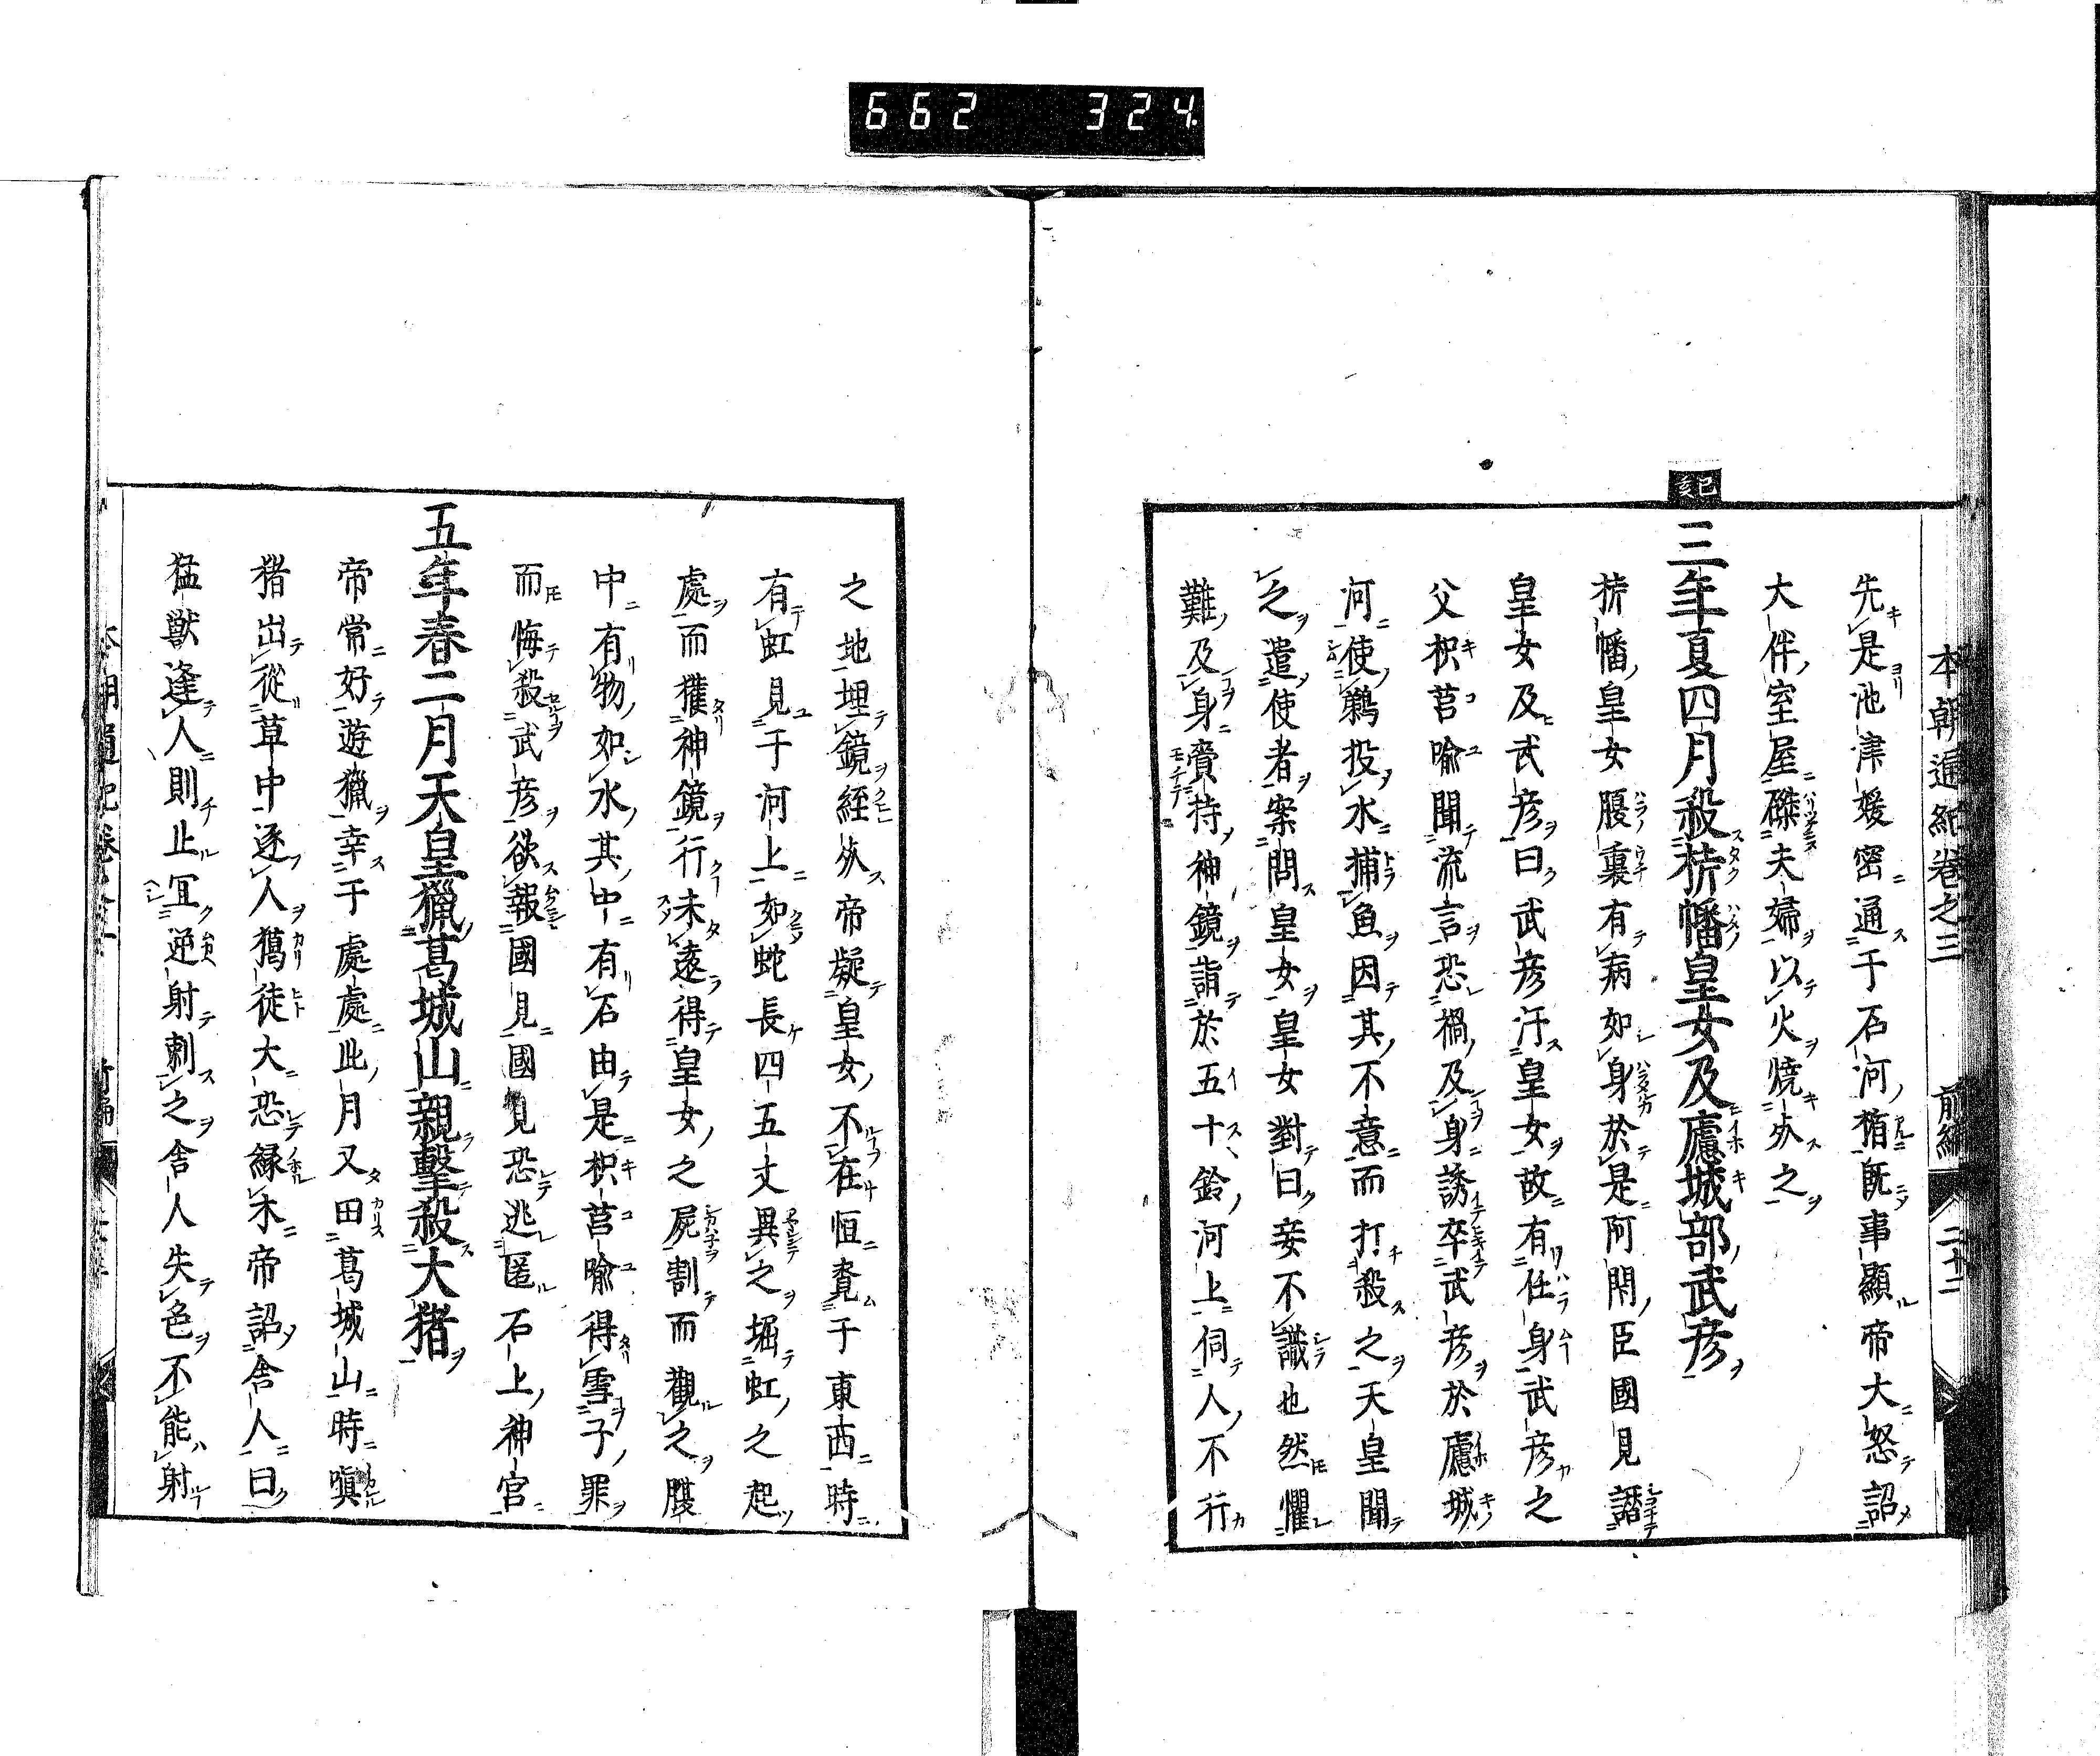 662 324
本朝通紀卷之三 前編 二十二
先是池津媛密通于石河楯既事顯帝大怒詔
大伴室屋磔夫婦以火燒𣦸之
己亥
三年夏四月殺栲幡皇女及廬城部武彦
栲幡皇女腹裏有病如身於是阿閇臣國見譖
皇女及武彦曰武彦汙皇女故有任身武彦之
父枳莒喻聞流言恐禍及身誘卒武彦於廬城
河使鵜投水捕魚因其不意而打殺之天皇聞
之遣使者案問皇女皇女對曰妾不識也然懼
難及身賷持神鏡詣於五十鈴河上伺人不行
之地埋鏡經𣦸帝疑皇女不在恒覔于東西時
有虹見于河上如蛇長四五丈異之堀虹之起
處而獲神鏡行未遠得皇女之屍割而觀之腹
中有物如水其中有石由是枳莒喻得雪子罪
而悔殺武彦欲報國見國見恐逃匿石上神官
五年春二月天皇獵葛城山親擊殺大猪
帝常好遊獵幸于處處此月又田葛城山時嗔
猪出從草中逐人獦徒大恐緣木帝詔舍人曰
猛獸逢人則止冝逆射刺之舍人失色不能射